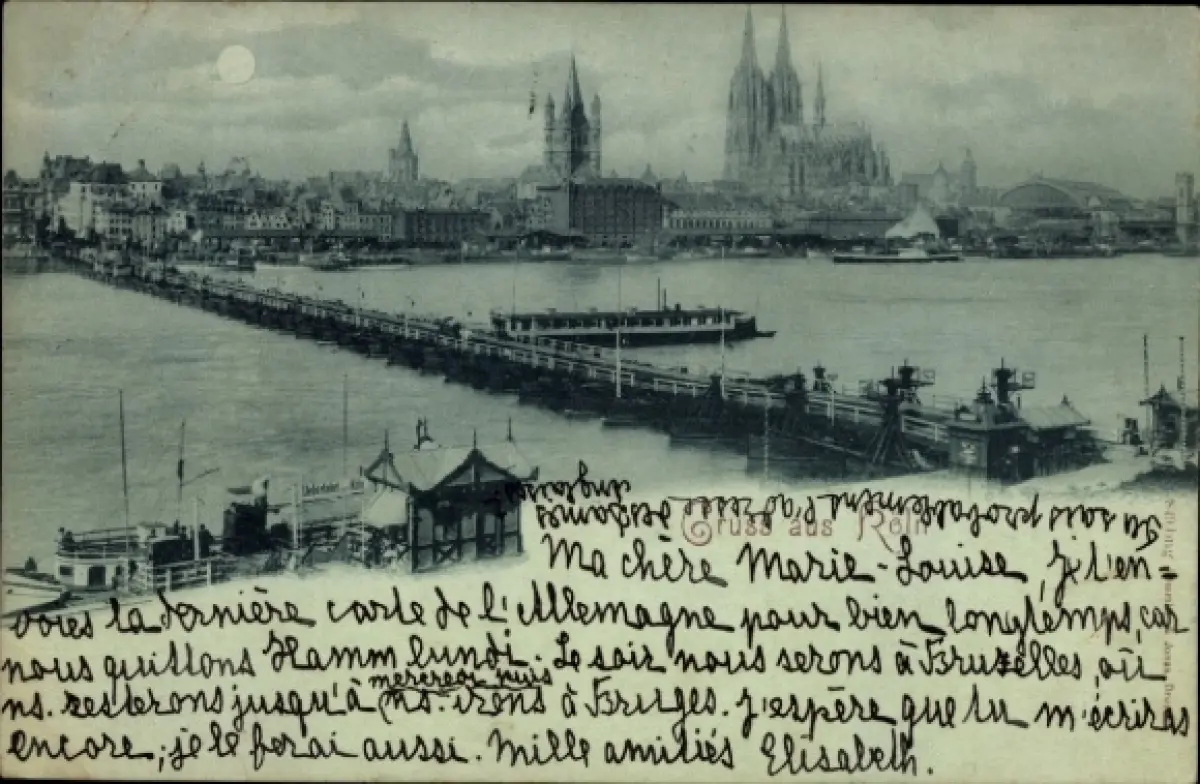 Gruss aus Köln
Tu sais probablement l'adresse de
Ma chère Marie-Louise, je t'en=
voies la dernière carte de l'Allemagne pour bien longtemps, car
nous quittons Hamm lundi. Le soir nous serons à Bruxelles, où
ns. resterons jusqu'à mercredi puis ns. irons à Bruges. J'espère que tu m'écriras
encore; je le ferai aussi. Mille amitiés Elisabeth.